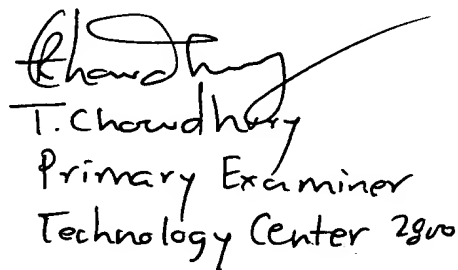 Chowdhury
T. Chowdhury
Primary Examiner
Technology Center 2800